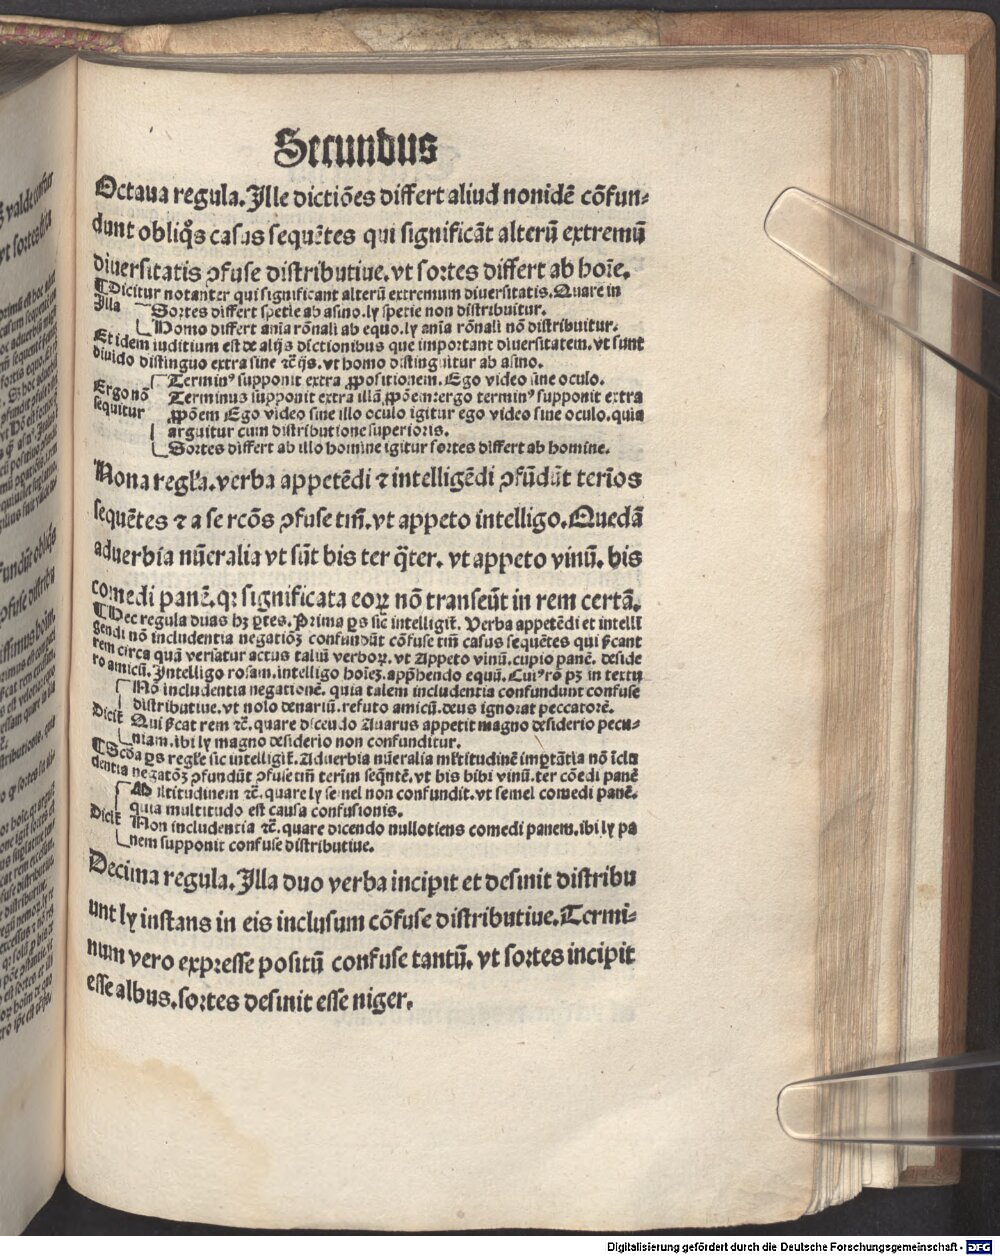 Secundus
Octaua regula. Ille dictiões differt aliud nonidē cõfun-
dunt obliqꝰs casus sequētes qui significāt alterū extremū
diuersitatis ꝯfuse distributiue. vt sortes differt ab hoīe.
¶ Dicitur notanter qui significant alterū extremum diuersitatis. Quare in
illa
Sortes differt spetie ab asino. ly spetie non distribuitur.
Homo differt anīa rōnali ab equo. ly anīa rōnali nō distribuitur.
Et idem iuditium est de alijs dictionibus que important diuersitatem. vt sunt
diuido distinguo extra sine ⁊c̄ ijs. vt homo distinguitur ab asino.
Ergo nō
sequitur
Terminꝰ supponit extra ꝓpositionem. Ego video sine oculo.
Terminus supponit extra illā ꝓpōem: ergo terminꝰ supponit extra
ꝓpōem Ego video sine illo oculo igitur ego video sine oculo. quia
arguitur cum distributione superioris.
Sortes differt ab illo homine igitur sortes differt ab homine.
Nona regl'a. verba appetēdi ⁊ intelligēdi ꝯfūdūt terīos
sequētes ⁊ a se rcōs ꝯfuse tm̄. vt appeto intelligo. Quedā
aduerbia nūeralia vt sūt bis ter q̄ter. vt appeto vinū. bis
comedi panē. qꝛ significata eoꝝ nō transeūt in rem certā.
¶ Hec regula duas hꝫ ꝑtes. Prima ꝑs sic intelligit̄. Verba appetēdi et intelli
gendi nō includentia negatiōꝫ confundūt cōfuse tm̄ casus sequētes qui ſ̄cant
rem circa quā versatur actus taliū verboꝝ. vt Appeto vinū. cupio panē. deside
ro amicū. Intelligo rosam. intelligo hoīeꝫ. app̄hendo equū. Cuiꝰ rō pꝫ in textu
Dicit̄
Nō includentia negationē. quia talem includentia confundunt confuse
distributiue. vt nolo denariū. refuto amicū. deus ignorat peccatorē.
Qui ſ̄cat rem ⁊c̄. quare dicendo Auarus appetit magno desiderio pecu-
niam. ibi ly magno desiderio non confunditur.
¶ Scōa ꝑs regle sic intelligit̄. Aduerbia nūeralia ml'titudinē imꝑtātia nō īclu
dentia negatōꝫ ꝯfundūt ꝯfuse tm̄ terīm seqn̄tē. vt bis bibi vinū. ter cōedi panē
Dicit̄
Multitudinem ⁊c̄. quare ly semel non confundit. vt semel comedi panē.
quia multitudo est causa confusionis.
Non includentia ⁊c̄. quare dicendo nullotiens comedi panem. ibi ly pa
nem supponit confuse distributiue.
Decima regula. Illa duo verba incipit et desinit distribu
unt ly instans in eis inclusum cōfuse distributiue. Termi-
num vero expresse positū confuse tantū. vt sortes incipit
esse albus. sortes desinit esse niger.
Digitalisierung gefördert durch die Deutsche Forschungsgemeinschaft - DFG